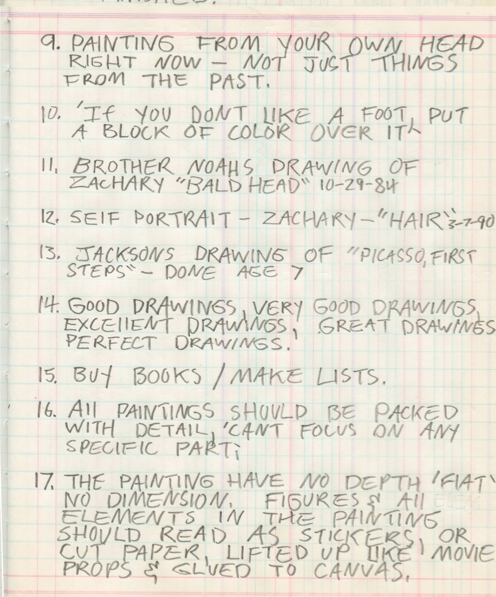 9. PAINTING FROM YOUR OWN HEAD
RIGHT NOW – NOT JUST THINGS
FROM THE PAST.
10. 'If YOU DONT LIKE A FOOT, PUT
A BLOCK OF COLOR OVER IT'
11. BROTHER NOAHS DRAWING OF
ZACHARY "BALD HEAD" 10-29-84
12. SEIF PORTRAIT – ZACHARY – "HAIR" 3-7-90
13. JACKSONS DRAWING OF "PICASSO, FIRST
STEPS" – DONE AGE 7
14. GOOD DRAWINGS, VERY GOOD DRAWINGS,
EXCEllENT DRAWINGS, GREAT DRAWINGS
PERFECT DRAWINGS.'
15. BUY BOOKS / MAKE LISTS.
16. All PAINTINGS SHOULD BE PACKED
WITH DETAIL, 'CANT FOCUS ON ANY
SPECIFIC PART;
17. THE PAINTING HAVE NO DEPTH 'FlAT'
NO DIMENSION. FIGURES & All
ELEMENTS IN THE PAINTING
SHOULD READ AS STICKERS, OR
CUT PAPER, LIFTED UP LIKE MOVIE
PROPS & GLUED TO CANVAS.